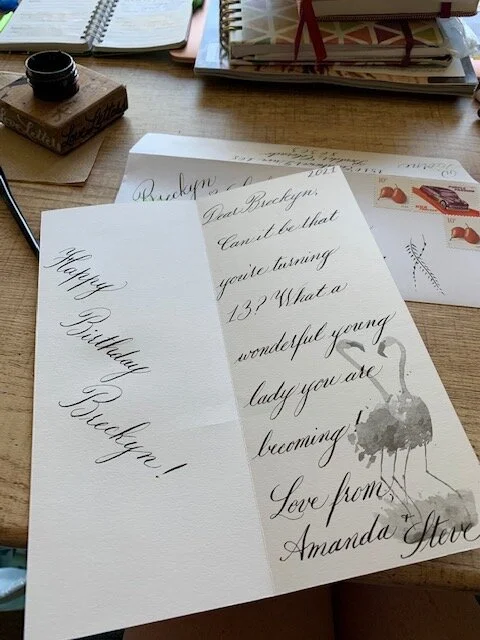 Happy
Birthday
Breckyn!
2021
Dear Breckyn,
Can it be that
you're turning
13? What a
wonderful young
lady you are
becoming!
Love from,
Amanda + Steve
Breckyn
Love Letters
10¢
10¢